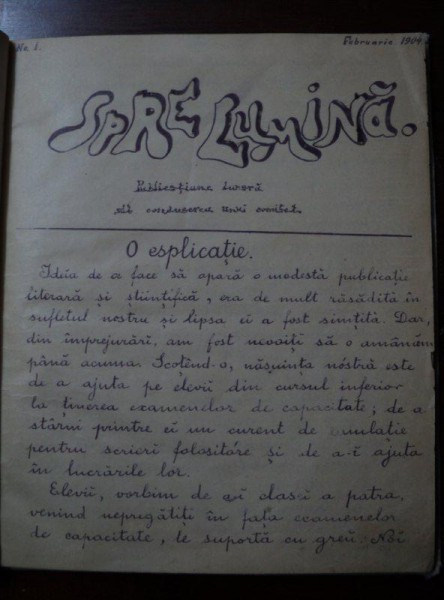 No. 1.
Februarie 1904
SPRE LUMINĂ.
Publicațiune lunară
sub conducerea unui comitet.
O esplicație.
Ideia de a face să apară o modestă publicație
literară și științifică, era de mult răsădită în
sufletul nostru și lipsa ei a fost simțită. Dar,
din împrejurări, am fost nevoiți să o amânăm
până acuma. Scoténd-o, năzuința nóstră este
de a ajuta pe elevii din cursul inferior
la ținerea examenelor de capacitate; de a
stârni printre ei un curent de emulație
pentru scrieri folositóre și de a-i ajuta
în lucrările lor.
Elevii, vorbim de a clasei a patra,
venind nepregătiți în fața examenelor
de capacitate, le suportă cu greŭ. Noi